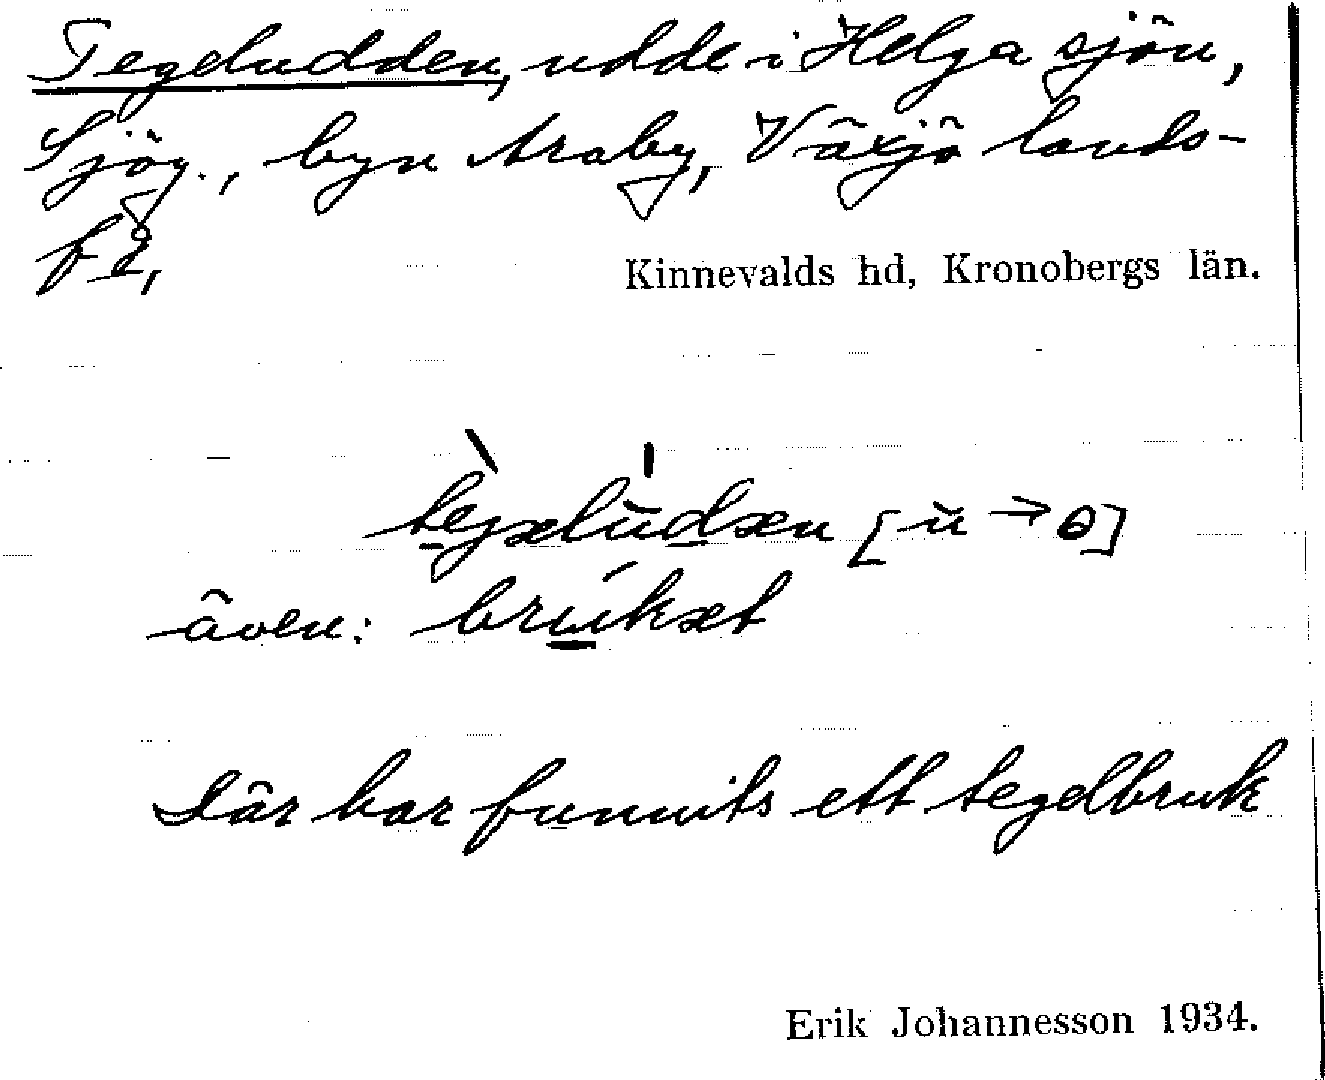 Tegeludden, udde i Helga sjön,
Sjög., byn Araby, Växjö lands-
f 2,
Kinnevalds hd, Kronobergs län.
även: brúkæt
Där har funnits ett tegelbruk
Erik Johannesson 1934.